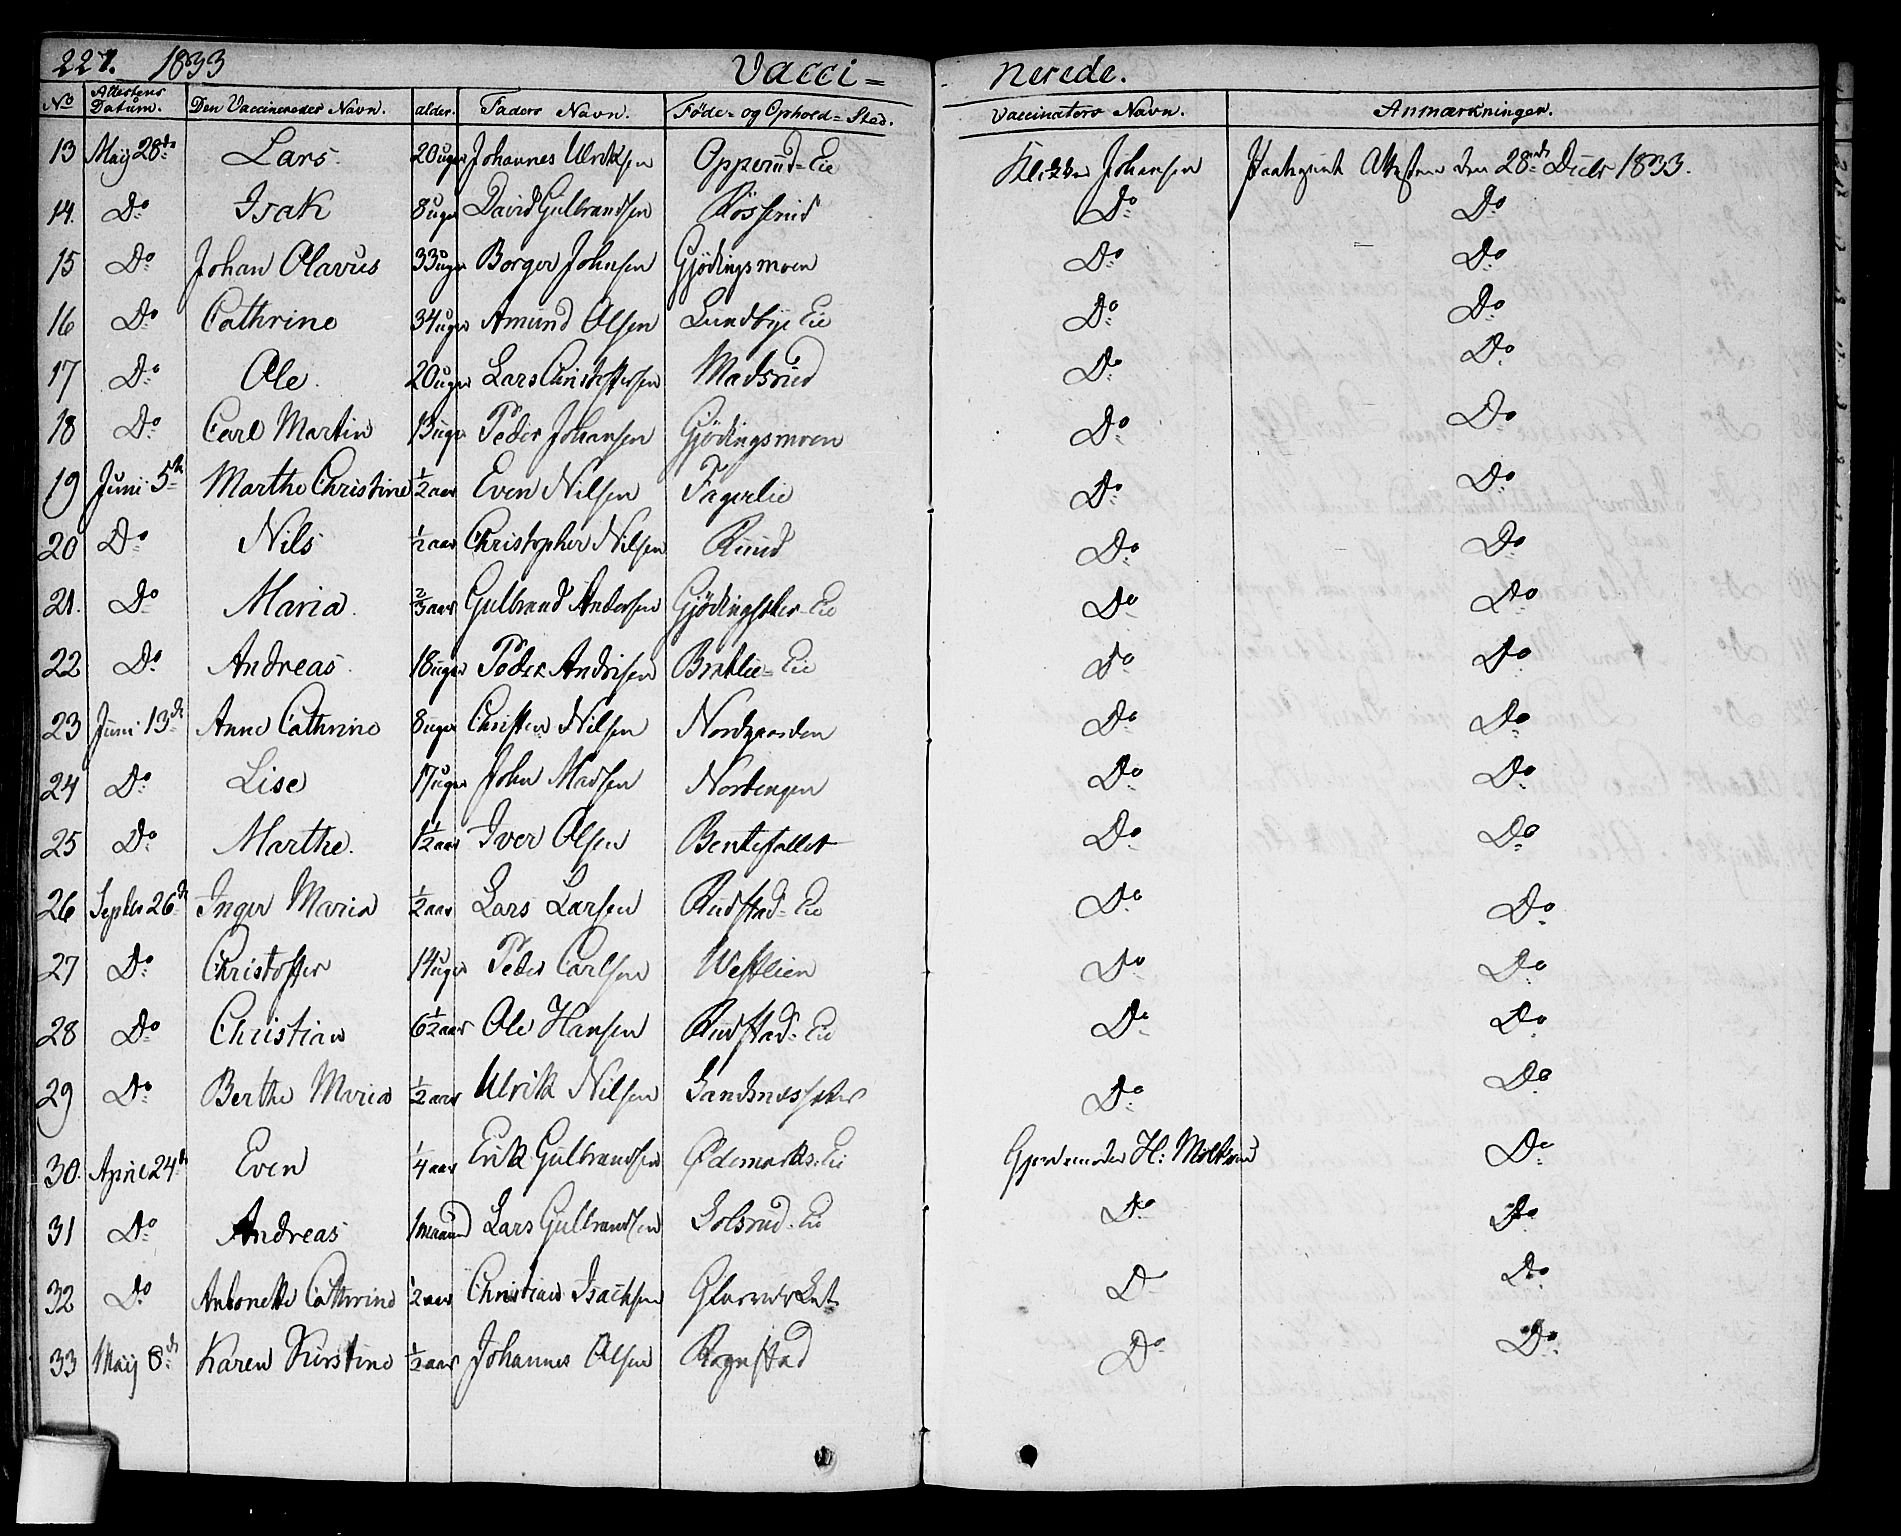 227. 1833 Vacci= nerede.
No Attestens Datum. Den Vaccineredes Navn. alder. Faders Navn. Føde= og Ophold=Sted. Vaccinators Navn. Anmærkninger.
13 Maij 28de Lars 20 uger Johannes Ulriksen Opperud=Eie Johansen Attesten den 28de Decbr 1833.
14. Do Isak 8 uger David Gulbrandsen Røsserud Do Do
15 Do Johan Olavus 33 uger Borger Johnsen Gjødingsmoen Do Do
16 Do Cathrine 34 uger Amund Olsen Lundbye Eie Do Do
17 Do Ole. 20 uger Lars Christoffersen Madsrud Do Do
18 Do Carl Martin 13 uger Peder Johansen Gjødingsmoen Do Do
19 Juni 5te Marthe Christine 1/2 aar Even Nilsen Fagerlie Do Do
20 Do Nils 1/2 aar Christopher Nilsen Ruud Do Do
21. Do Maria. 2/3 aar Gulbrand Andersen Eie Do Do
22 Do Andreas. 18 uger Peder Andrisen Bratlie=Eie Do Do
23 Juni 13de Anne Cathrine 8 uger Christen Nilsen Nordgaarden Do Do
24 Do Lise 17 uger John Madsen Nordengen Do Do
25 Do Marthe. 1 1/2 aar Iver Olsen Bentefallet Do Do
26 Septbr 26de Inger Maria 1/2 aar Lars Larsen Rudstad=Eie Do Do
27 Do Christoffer 14 uger Peder Carlsen Westlien Do Do
28 Do Christian 6 1/2 aar Ole Hansen Rudstad=Eie Do Do
29 Do Berthe Maria 1/2 aar Ulrik Nilsen Sandsnessæter Do Do
30. April 24de Even 1/4 aar Erik Gulbrandsen Ødemarks=Eie Gjordemoder H: Do
31 Do Andreas 1 maaned Lars Gulbrandsen Solsrud=Eie Do Do
32 Do Antonette Cathrine 1/2 aar Christian Isachsen Glasværket Do Do
33 Maij 8de Karen Kirstine 1/2 aar Johannes Olsen Rognstad Do Do